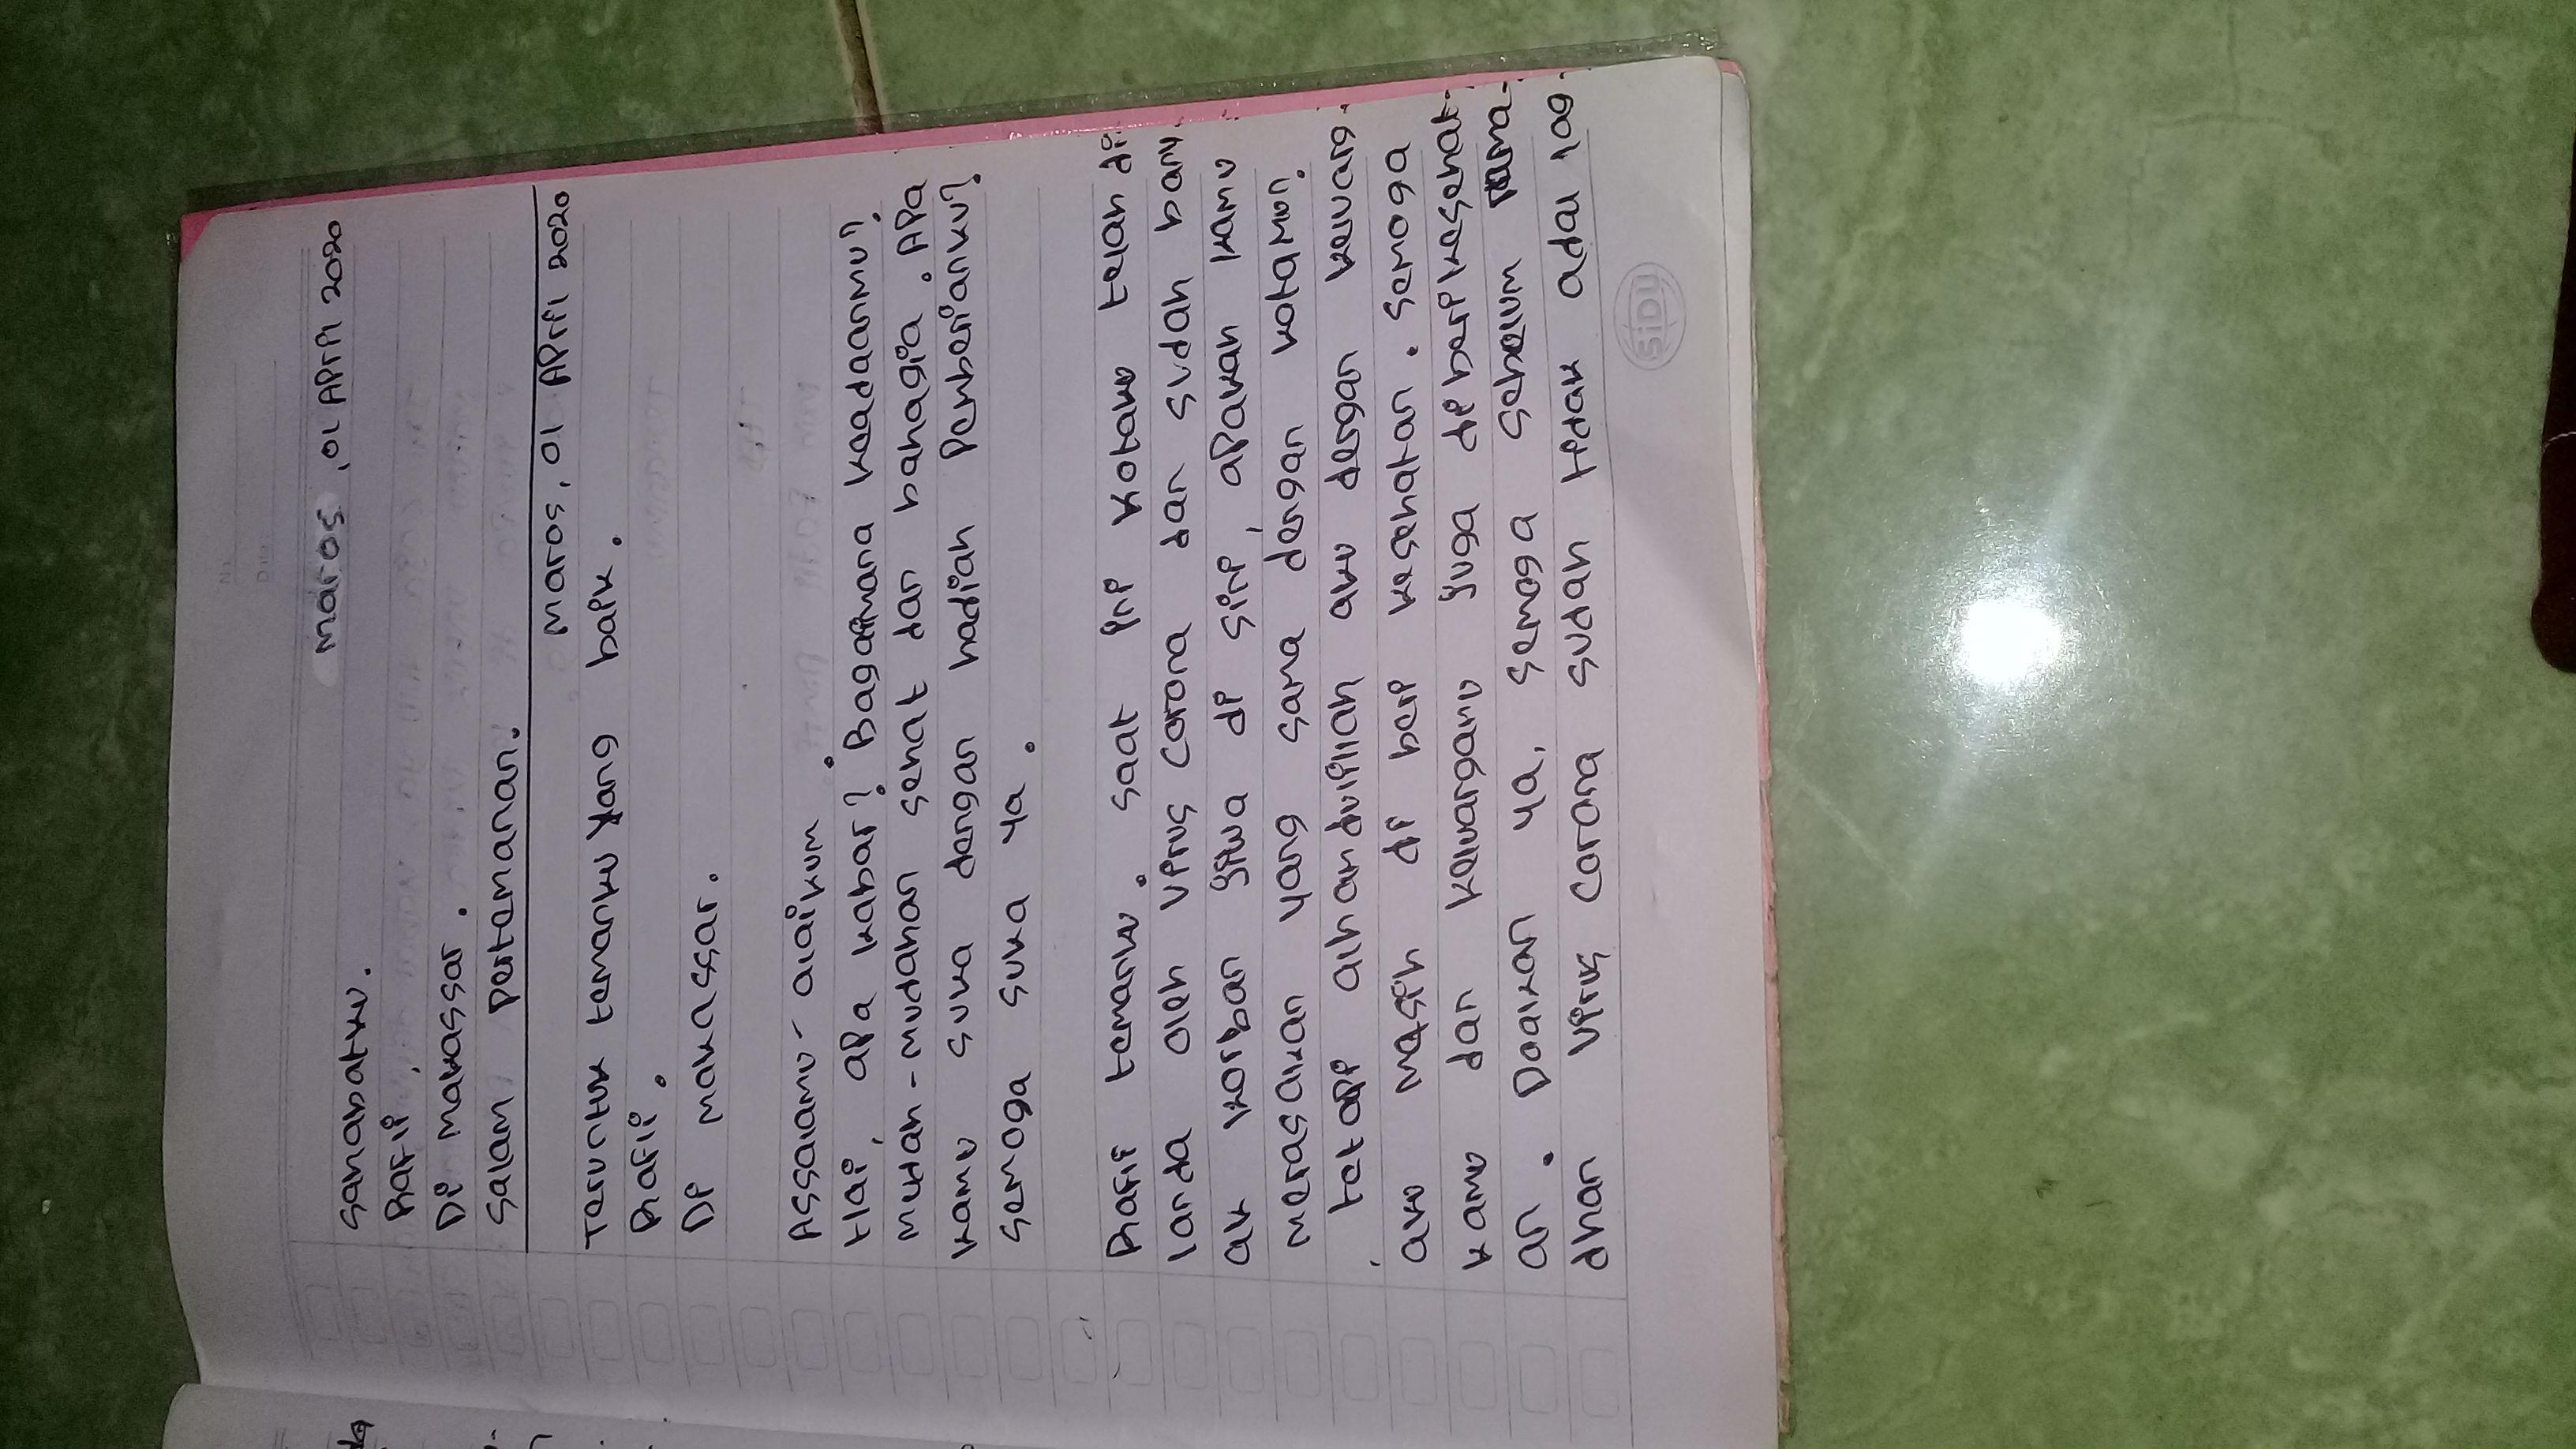 Maros, 01 April 2020
Sahabatku.
Rafii,
Di Makassar.
Salam Pertemanan.
Maros, 01 April 2020
Teruntuk temanku yang baik.
Rafii.
Di Makassar.
Assalamu-alaikum.
Hai, apa kabar? Bagaimana keadaanmu?
Mudah-mudahan sehat dan bahagia. Apa
kamu suka dengan hadiah pemberianku?
Semoga suka ya.
Rafii temanku. Saat ini kotaku telah di-
landa oleh virus corona dan sudah bany-
ak korban jiwa di sini, apakah kamu
merasakan yang sama dengan kotamu?
tetapi alhamduillah aku dengan keluarg-
aku masih di beri kesehatan. Semoga
kamu dan keluargamu juga di beri kesehat-
an. Doakan ya, semoga sebelum Rama-
dhan virus corona sudah tidak ada lag-
SiDU